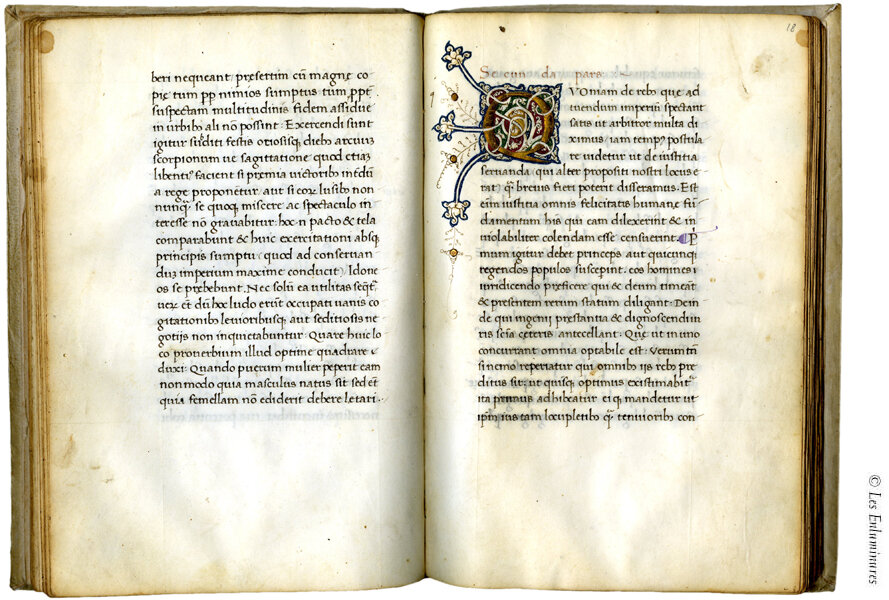 beri nequeant / presertim cũ magnę co
pię tum pp nimios sumptus tum ppt̃
suspectam multitudinis fidem assidue
in urbibꝰ ali nõ possint · Exercendi sunt
igitur subditi festis otiosisqꝫ diebꝰ arcuũ
scorpionum ue sagittatione quod etiã
libentiꝰ facient si premia uictoribꝰ in ediũ
a rege proponetur, aut si eoꝝ lusibꝰ non
nunqꝫ se quoqꝫ miscere ac spectaculo in
teresse nõ grauabitur · hoc · n · pacto & tela
comparabunt & huic exercitationi absqꝫ
principis sumptu / quod ad conseruan
dũ imperium maxime conducit / Idone
os se prębebunt · Nec solũ ea utilitas seqt̃
uerũ et dũ hoc ludo erũt occupati uanis co
gitationibꝰ leuioribusqꝫ aut seditiosis ne
gotijs non inquietabuntur · Quare huic lo
co prouerbium illud optime quadrare
duxi · Quando puerum mulier peperit eam
non modo quia masculus natus sit sed et̃
quia femellam nõ ediderit debere letari ·
18
Secunda pars
VOniam de rebꝰ que ad
tuendum imperiũ spectant
satis ut arbitror multa di
ximus / iam tempꝰ postula
re uidetur ut de iustitia
seruanda / qui alter propositi nostri locus e
rat / qꝫ breuis fieri poterit disseramus · Est
eñ iustitia omnis felicitatis humanę fũ
damentum his qui eam dilexerint & in
uiolabiliter colendam esse censuerint · Pͥ
mum igitur debet princeps aut quicunqꝫ
regendos populos suscepit · eos homines i
iuridicendo preficere qui & deum timeãt
& presentem rerum statum diligant · Dein
de qui ingenij prestantia & dignoscendi iu
ris scĩa ceteris antecellant · Que ut in uno
concurrant omnia optabile est · Verum tñ
si nemo reperiatur qui omnibꝰ ijs rebꝰ pre
ditus sit / ut quisqꝫ optimus existimabit̃
ita primus adhibeatur · ei qꝫ mandetur ut
ipm̃ ius tam locupletibꝰ qꝫ tenuioribꝰ con
© Les Enluminures